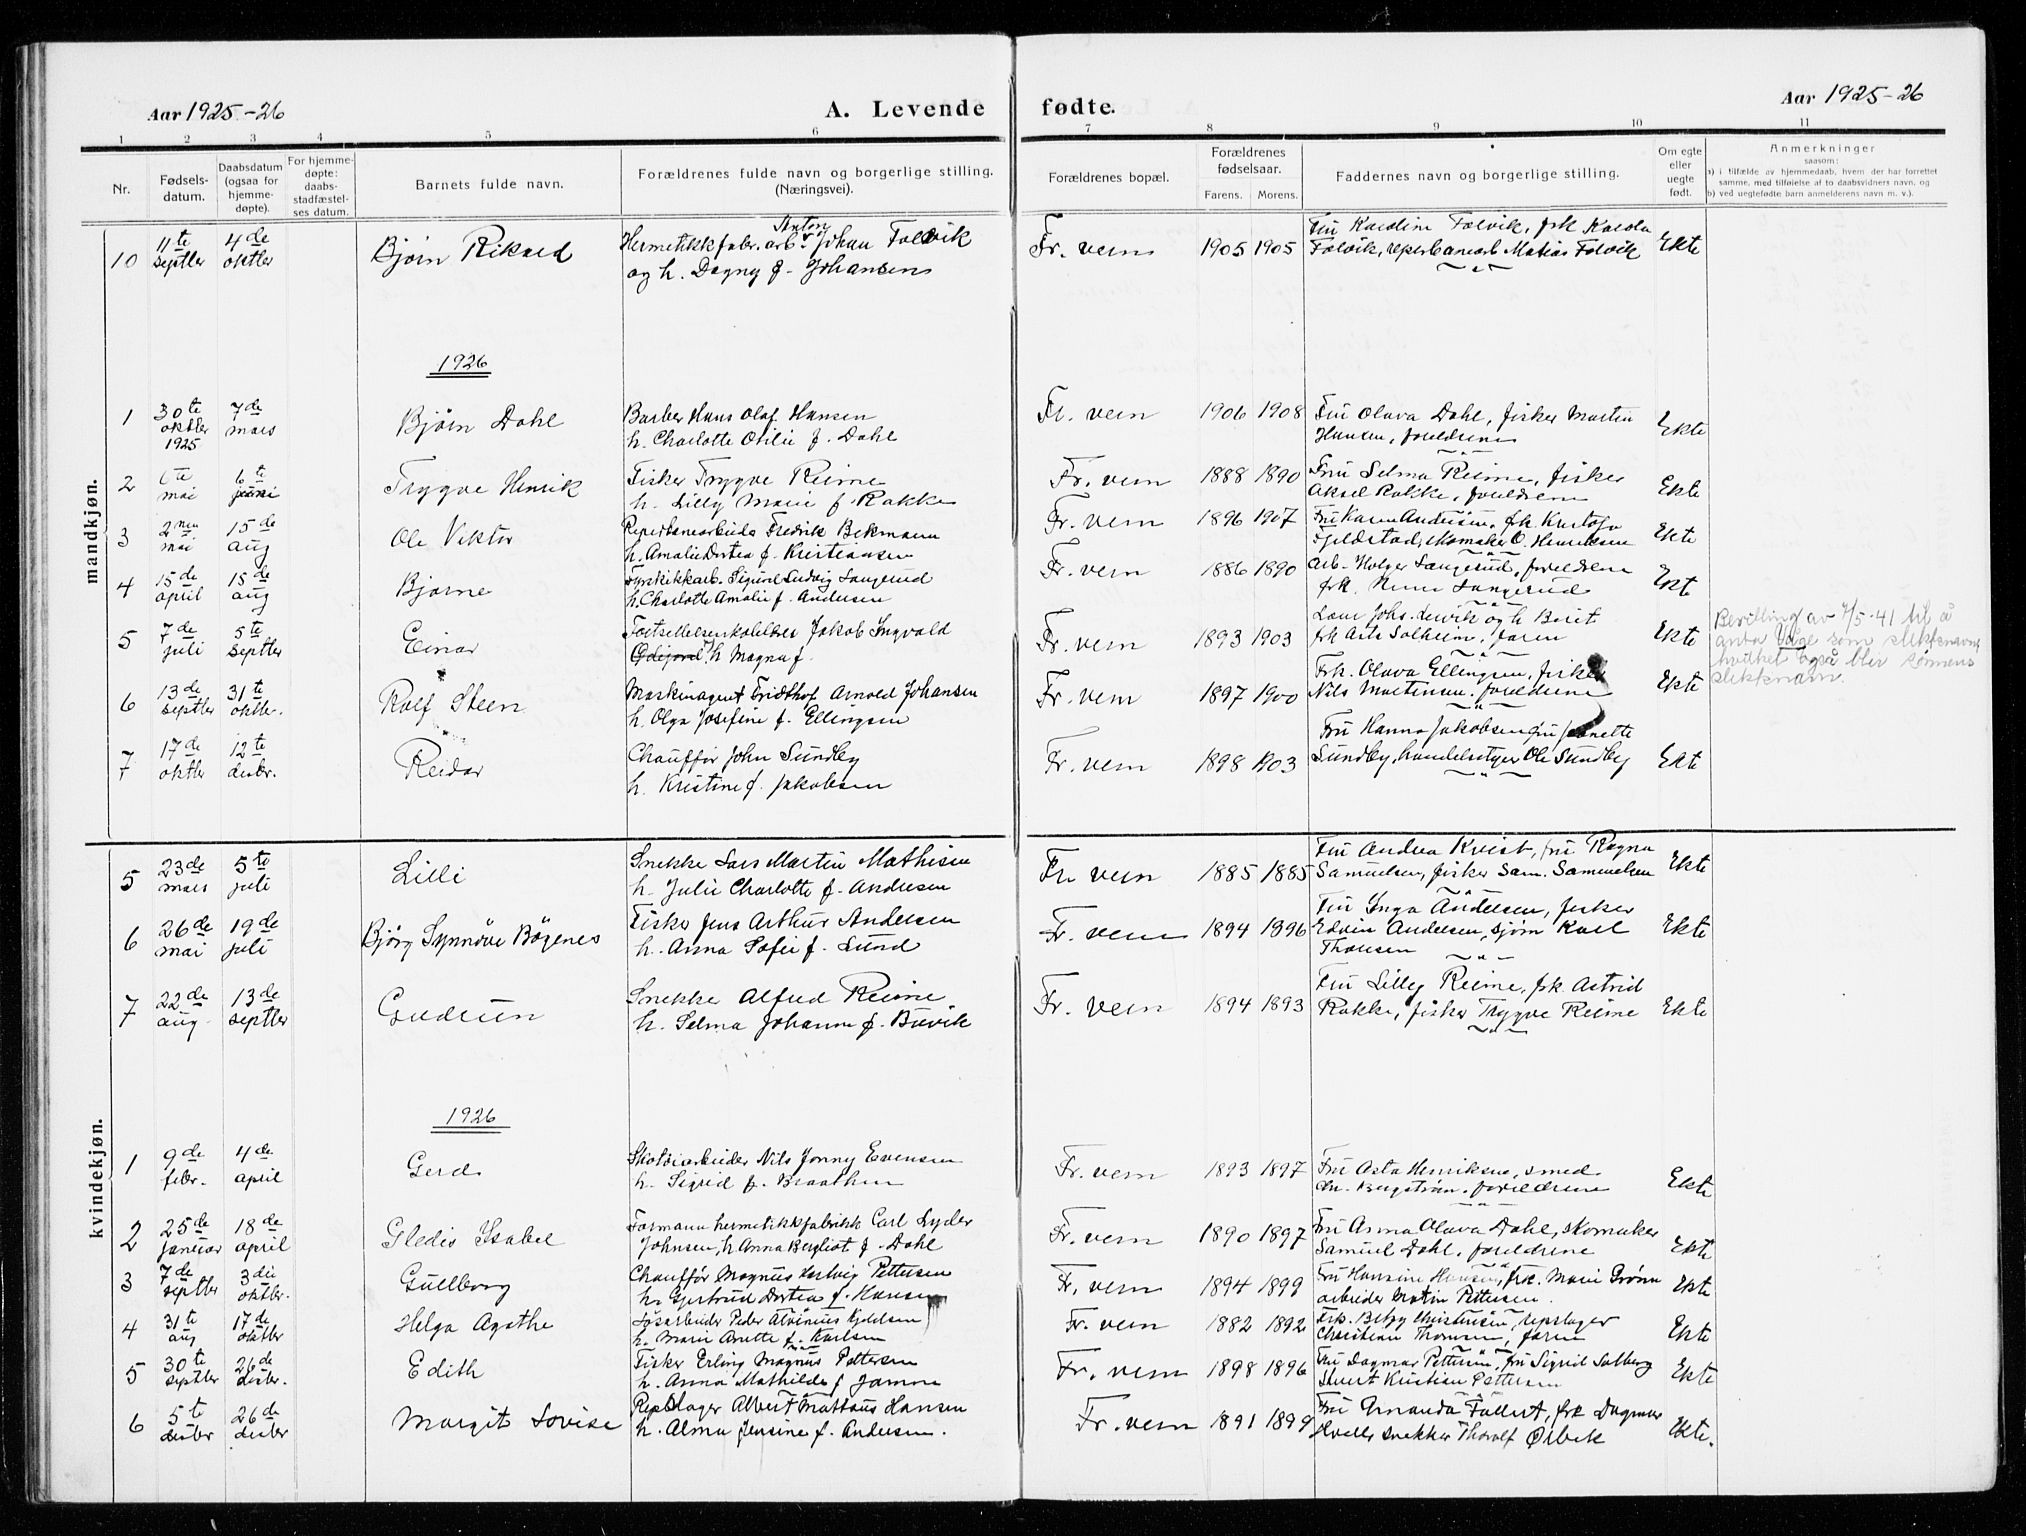 Aar 1925-26
A. Levende fødte.
Aar 1925-26
1 2 3 4 5 6 7 8 9 10 11
Nr.
Fødsels-
datum.
Daabsdatum
(ogsaa for
hjemme-
døpte).
For hjemme-
døpte:
daabs-
stadfæstel-
ses datum.
Barnets fulde navn.
Forældrenes fulde navn og borgerlige stilling.
(Næringsvei).
Forældrenes bopæl.
Forældrenes
fødselsaar.
Farens. Morens.
Faddernes navn og borgerlige stilling.
Om egte
eller
uegte
født.
Anmerkninger
saasom:
a) i tilfælde av hjemmedaab, hvem der har forrettet
samme, med tilføielse af to daabsvidners navn, og
b) ved uegtefødte barn anmelderens navn m. v.).
mandkjøn.
10 11te septbr 4de oktbr Bjørn Rikard Hermetikkfabr. arbr Anton Johan Falvik
og h. Dagny f. Johansen
Fr. vern 1905 1905 Fru Karoline Falvik, frk Karola
Falvik, reperbanearb Matias Falvik Ekte
1926
1 30te oktbr 1925 7de mars Bjørn Dahl Barber Hans Olaf Hansen
h. Charlotte Otilie f. Dahl
Fr. vern 1906 1908 Fru Olava Dahl, fisker Martin
Hansen, foreldrene Ekte
2 6te mai 6te juni Trygve Henrik Fisker Trygve Reime
h. Lilly Marie f. Rakke
Fr. vern 1888 1890 Fru Selma Reime, fisker
Aksel Rakke, foreldrene Ekte
3 2nen mai 15de aug Ole Viktor Reperbanearbeider Fredrik Bekmann
h. Amalie Dortea f. Kristiansen
Fr. vern 1896 1907 Fru Karen Andersen, frk. Kristofa
Fjeldstad, skomaker O. Henriksen Ekte
4 15de april 15de aug Bjarne Sigurd Ludvig Langerud
h. Charlotte Amalie f. Andersen
Fr. vern 1886 1890 Arb. Holger Langerud, foreldrene
frk. Langerud Ekt
5 7de juli 5te septbr Einar Jakob Ingvald
h Magna f.
Fr. vern 1893 1903 og h Borit
frk Asta Solheim, faren Ekte
Bevilling av 7/5-41 til å
anta Vage som slektsnavn
hvilket også blir sønnens
slektsnavn.
6 13de septbr 31te oktbr. Rolf Steen Maskinagent Fridthof Arnold Johansen
h. Olga Josefine f. Ellingsen
Fr. vern 1897 1900 Frk. Olava Ellingsen, fisker
Nils Martinsen, foreldrene Ekte
7 17de oktbr 12te desbr. Reidar Chauffør John Sundby
h. Kristine f. Jakobsen
Fr. vern 1898 1903 Fru Hanna Jakobsen, fru Janette
Sundby, handelsreisende Ole Sundby Ekte
kvindekjøn.
5 23de mars 5te juli Lilli Snekker Lars Martin Mathisen
h. Julie Charlotte f. Andresen
Fr. vern 1885 1885 Fru Andrea Kvist, fru Ragna
Samuelsen, fisker Sam. Sammuelsen Ekte
6 26de mai 19de juli Bjørg Synnøve Bøgenes Fisker Jens Arthur Andersen
h. Anna Sofie f. Lund
Fr. vern 1894 1896 Fru Inga Andersen, fisker
Edvin Andersen, sjøm Karl
Thorsen Ekte
7 22de aug. 13de septbr Gudrun Snekker Alfred Reime
h. Selma Johanne f. Buvik
Fr. vern 1894 1893 Fru Lilly Reime, frk. Astrid
Rakke, fisker Trygve Reime Ekte
1926
1 9de febr. 4de april Gerd Skotøiarbeider Nils Jonny Evensen
h. Sigrid f. Braathen
Fr. vern 1893 1897 Fru Asta Henriksen, smed
Chr. Bergstrøm, foreldrene Ekte
2 25de januar 18de april Gledis Isabel Formann hermetikkfabrikk Carl Lyder
Johnsen, h. Anna Bergliot f. Dahl
Fr. vern 1890 1897 Fru Anna Olava Dahl, skomaker
Samuel Dahl, foreldrene Ekte
3 7de septbr 3die oktbr. Gullborg Chauffør Magnus Hartvig Pettersen
h. Gjertrud Dortea f. Hansen
Fr. vern 1894 1899 Fru Hansine Hansen, frk. Marie Grønn
arbeider Martin Pettersen Ekte
4 31te aug 17de oktbr Helga Agathe Løsarbeider Peder Alvinius Kjeldsen
h. Marie Anette f. Karlsen
Fr. vern 1882 1892 Frk. Betzy Christensen, repslager
Christian Thomsen, faren Ekte
5 30te septbr 26de desbr. Edith Fisker Erling Magnus Pettersen
h. Anna Mathilde f. Jamne
Fr. vern 1898 1896 Fru Dagmar Pettersen, fru Sigrid Solberg
Stuert Kristian Pettersen Ekte
6 5te desbr 26de desbr Margit Lovise Repslager Albert Mathæus Hansen
h. Alma Jensine f. Andersen.
Fr. vern 1891 1899 Fru Amanda Fallert, frk Dagmar
snekker Thoralf Ørbek Ekte.